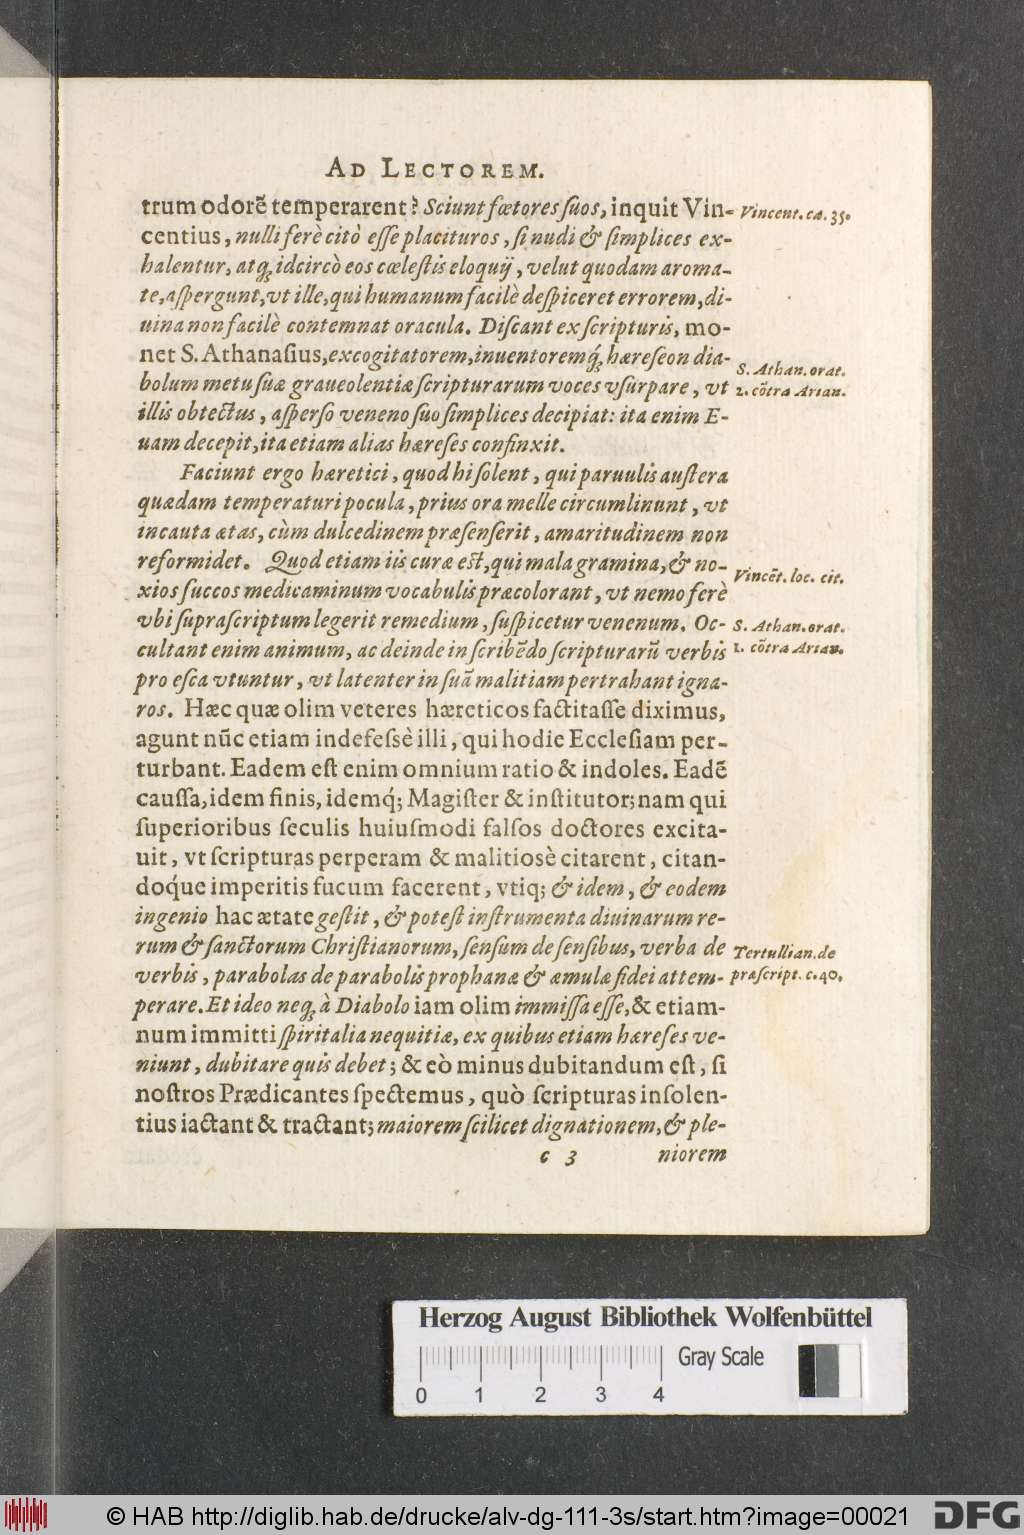 AD LECTOREM.
trum odorē temperarent? Sciunt fœtores ſuos, inquit Vin-
Vincent. ca. 35.
centius, nulli ferè citò eſſe placituros, ſi nudi & ſimplices ex-
halentur, atq; idcircò eos cœleſtis eloquij, velut quodam aroma-
te, aſpergunt, vt ille, qui humanum facilè deſpiceret errorem, di-
uina non facilè contemnat oracula. Diſcant ex ſcripturis, mo-
net S. Athanaſius, excogitatorem, inuentoremq́; hæreſeon dia-
S. Athan. orat.
bolum metu ſuæ graueolentiæ ſcripturarum voces vſurpare, vt
2. cōtra Arian.
illis obtectus, aſperſo veneno ſuo ſimplices decipiat: ita enim E-
uam decepit, ita etiam alias hæreſes confinxit.
Faciunt ergo hæretici, quod hi ſolent, qui paruulis auſtera
quædam temperaturi pocula, prius ora melle circumlinunt, vt
incauta ætas, cùm dulcedinem præſenſerit, amaritudinem non
reformidet. Quod etiam iis curæ eſt, qui mala gramina, & no-
Vincēt. loc. cit.
xios ſuccos medicaminum vocabulis præcolorant, vt nemo ferè
vbi ſupraſcriptum legerit remedium, ſuſpicetur venenum. Oc-
S. Athan. orat.
cultant enim animum, ac deinde in ſcribēdo ſcripturarū verbis
1. cōtra Arian.
pro eſca vtuntur, vt latenter in ſuā malitiam pertrahant igna-
ros. Hæc quæ olim veteres hæreticos factitaſſe diximus,
agunt nūc etiam indefeſsè illi, qui hodie Eccleſiam per-
turbant. Eadem eſt enim omnium ratio & indoles. Eadē
cauſſa, idem finis, idemq́; Magiſter & inſtitutor; nam qui
ſuperioribus ſeculis huiuſmodi falſos doctores excita-
uit, vt ſcripturas perperam & malitiosè citarent, citan-
doq́ue imperitis fucum facerent, vtiq; & idem, & eodem
ingenio hac ætate geſtit, & poteſt inſtrumenta diuinarum re-
rum & ſanctorum Chriſtianorum, ſenſum de ſenſibus, verba de
Tertullian. de
verbis, parabolas de parabolis prophanæ & æmulæ fidei attem-
præſcript. c. 40.
perare. Et ideo neq; à Diabolo iam olim immiſſa eſſe, & etiam-
num immitti ſpiritalia nequitiæ, ex quibus etiam hæreſes ve-
niunt, dubitare quis debet; & eò minus dubitandum eſt, ſi
noſtros Prædicantes ſpectemus, quò ſcripturas inſolen-
tius iactant & tractant; maiorem ſcilicet dignationem, & ple-
c 3 niorem
Herzog August Bibliothek Wolfenbüttel
Gray Scale
0 1 2 3 4
© HAB http://diglib.hab.de/drucke/alv-dg-111-3s/start.htm?image=00021
DFG